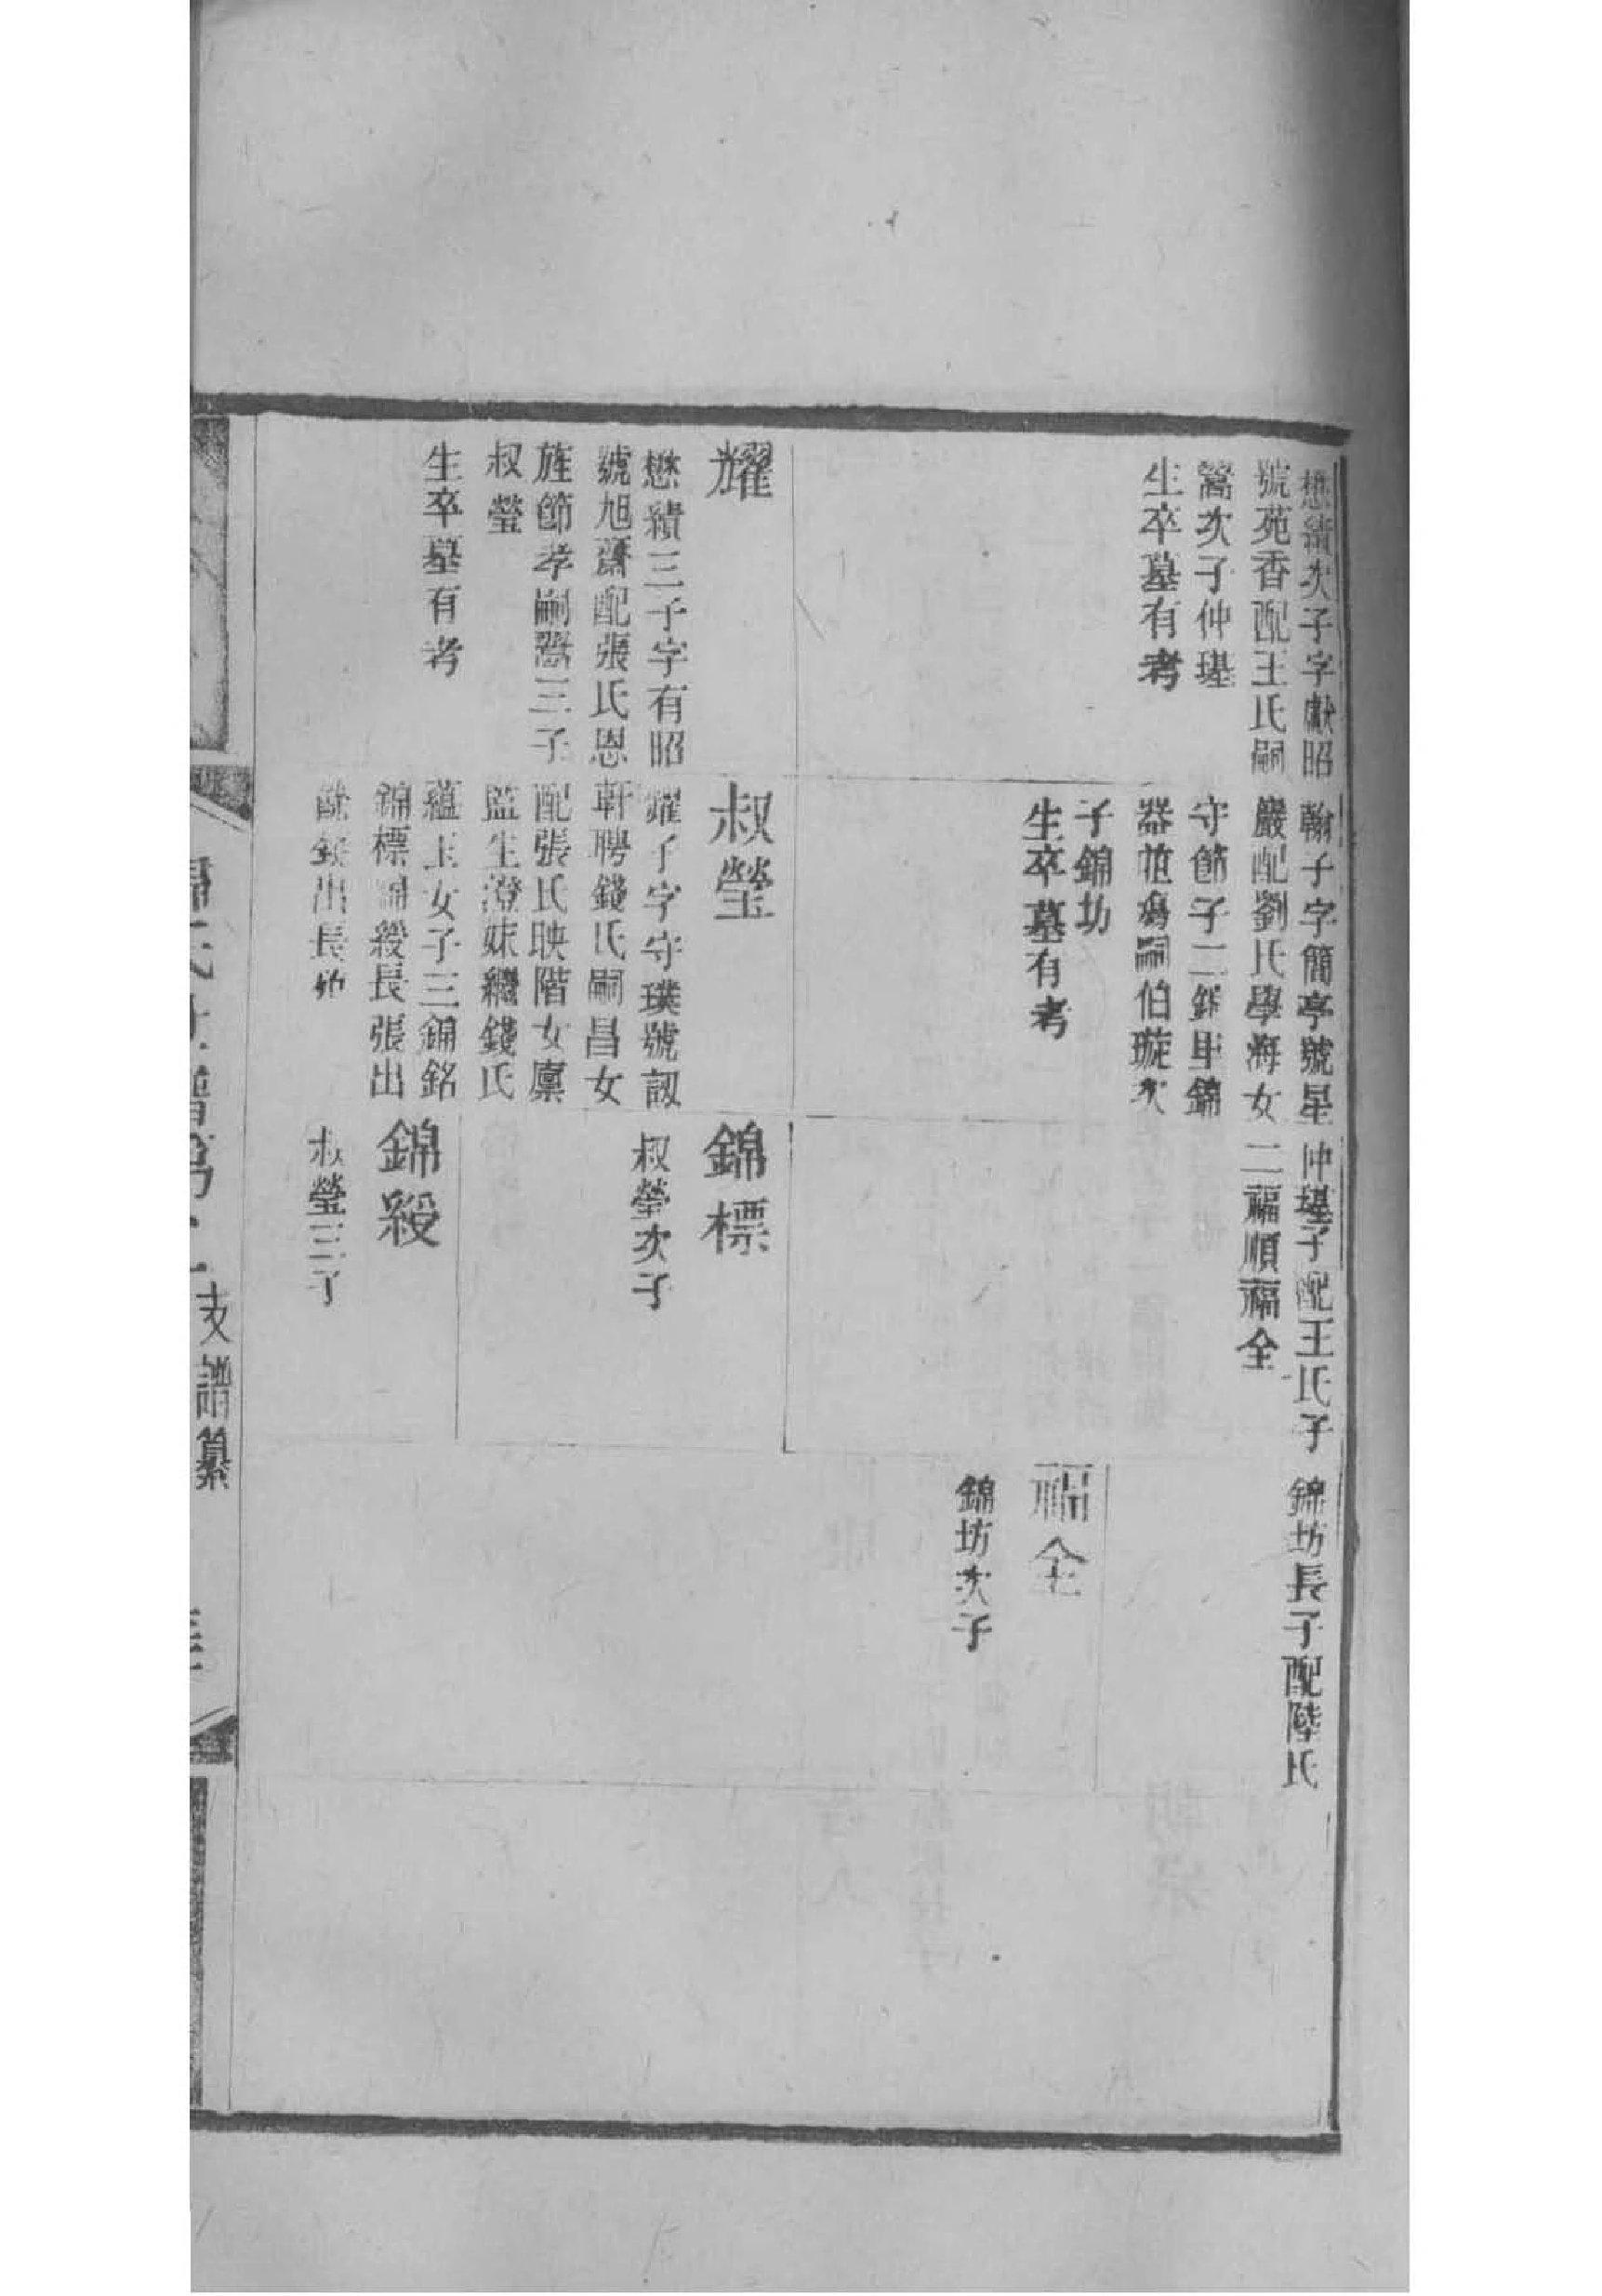 懋績次子字獻昭
號苑香配王氏嗣
翯次子仲璂
生卒墓有考
翰子字簡亭號星
嚴配劉氏學海女
守節子二錦
錦
器
嗣伯璇次
子錦坊
生卒墓有考
仲璂子配王氏子
二福順福全
錦坊長子配陸氏
福全
錦坊次子
耀
懋績三子字有昭
號旭齋配張氏恩
旌節孝嗣翯三子
叔瑩
生卒墓有考
叔瑩
耀子字守璞號
軒聘錢氏嗣昌女
配張氏映階女廩
監生澄妹繼錢氏
蘊玉女子三錦銘
錦標錦綬長張出
餘錢出長殤
錦標
叔瑩次子
錦綬
叔瑩三子
支譜纂